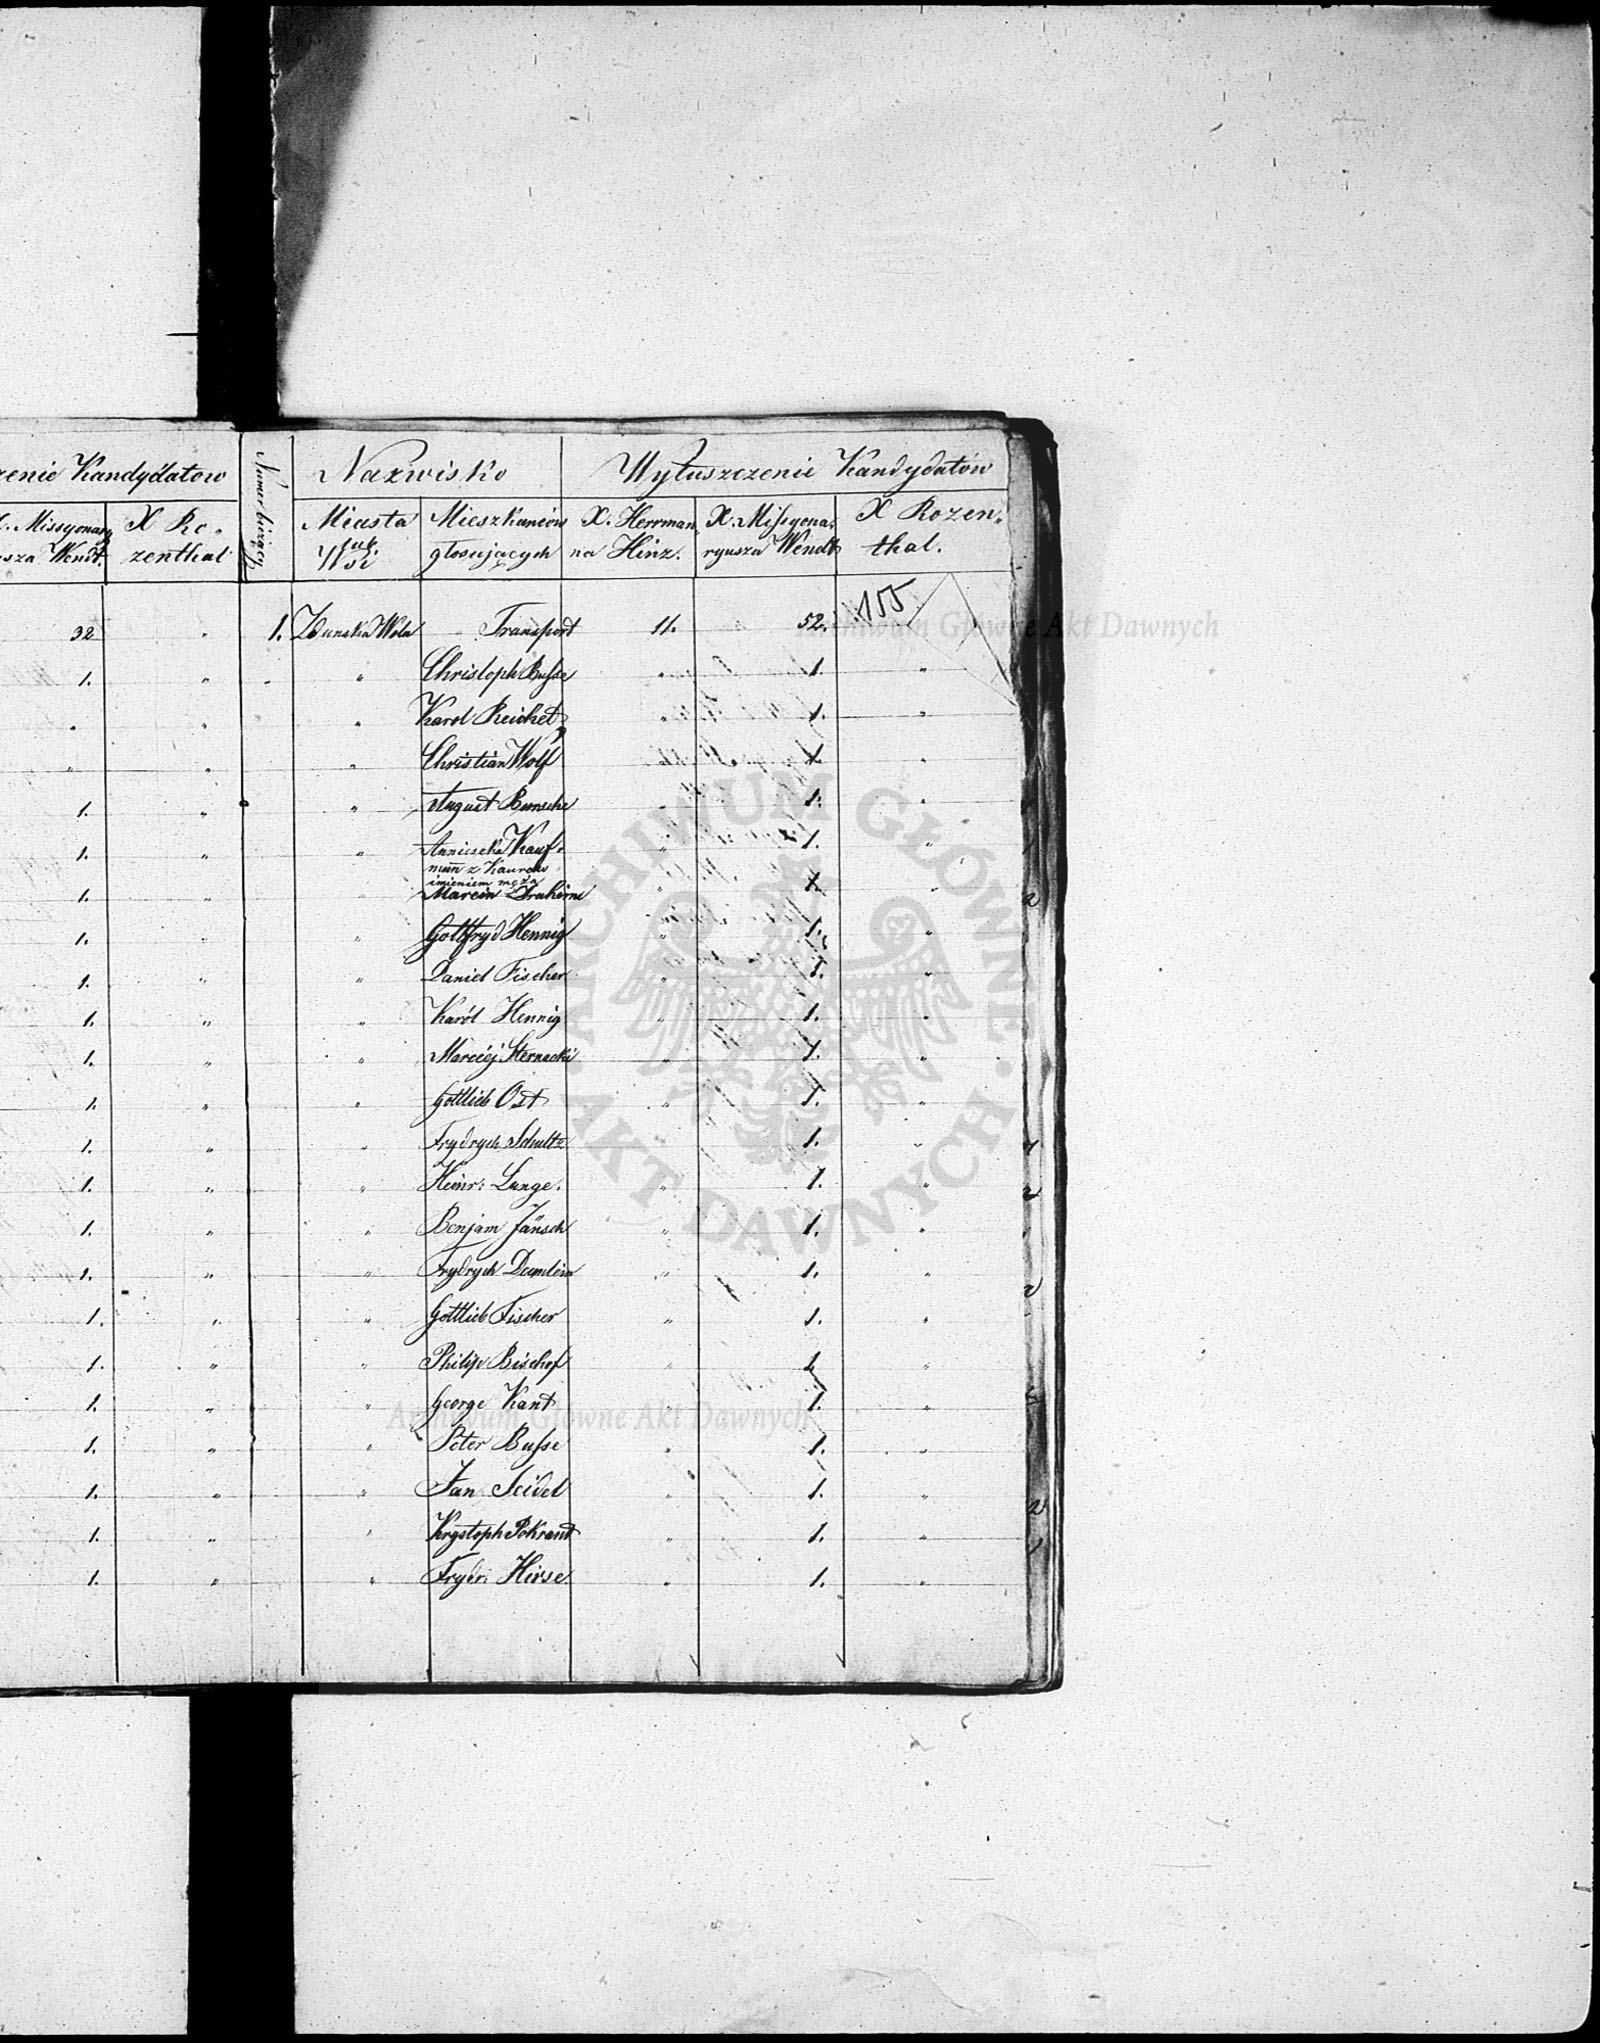 zenie Kandydatow
X. Missyonary
usza Wendt.
X Ro„
zenthal
32 "
1. "
" "
" "
1. "
1. "
1. "
1. "
1. "
1. "
1. "
1. "
1. "
1. "
1. "
1. "
1. "
1. "
1. "
1. "
1. "
1. "
1. "
Numer bieżący
Nazwisko
Wyłuszczenie Kandydatów
Miasta
lub
Wsi
Mieszkańców
głosujących
X. Herrman
na Hinz.
X. Missyona
ryusza Wendt
X Rozen„
thal.
155
1. Zdunska Wola Transport 11. 52.
" Christoph Busse " 1. "
" Karol Reichelt " 1. "
" Christian Wolf " 1. "
" August Bunsche " 1. "
" Anniseka Kauf„ " 1. "
mann z
imieniem męża
Marcin " 1. "
" Gottfryd Hennig " 1. "
" Daniel Fischer " 1. "
" Karól Hennig " 1. "
" Marciej Sternacki " 1. "
" Gottlieb Ost " 1. "
" Frydrych Schultz " 1. "
" Heinr: Lange. " 1. "
" Benjam Jänsch " 1. "
" Frydrych Deumlein " 1. "
" Gottlieb Fischer " 1. "
" Philip Bischof " 1. "
" George Kant " 1. "
" Peter Busse " 1. "
" Jan Seidel " 1. "
" Krystoph Pokrant " 1. "
" Frydr: Hirse. " 1. "
Archiwum Główne Akt Dawnych
ARCHIWUM GŁÓWNE · AKT DAWNYCH ·
Archiwum Główne Akt Dawnych